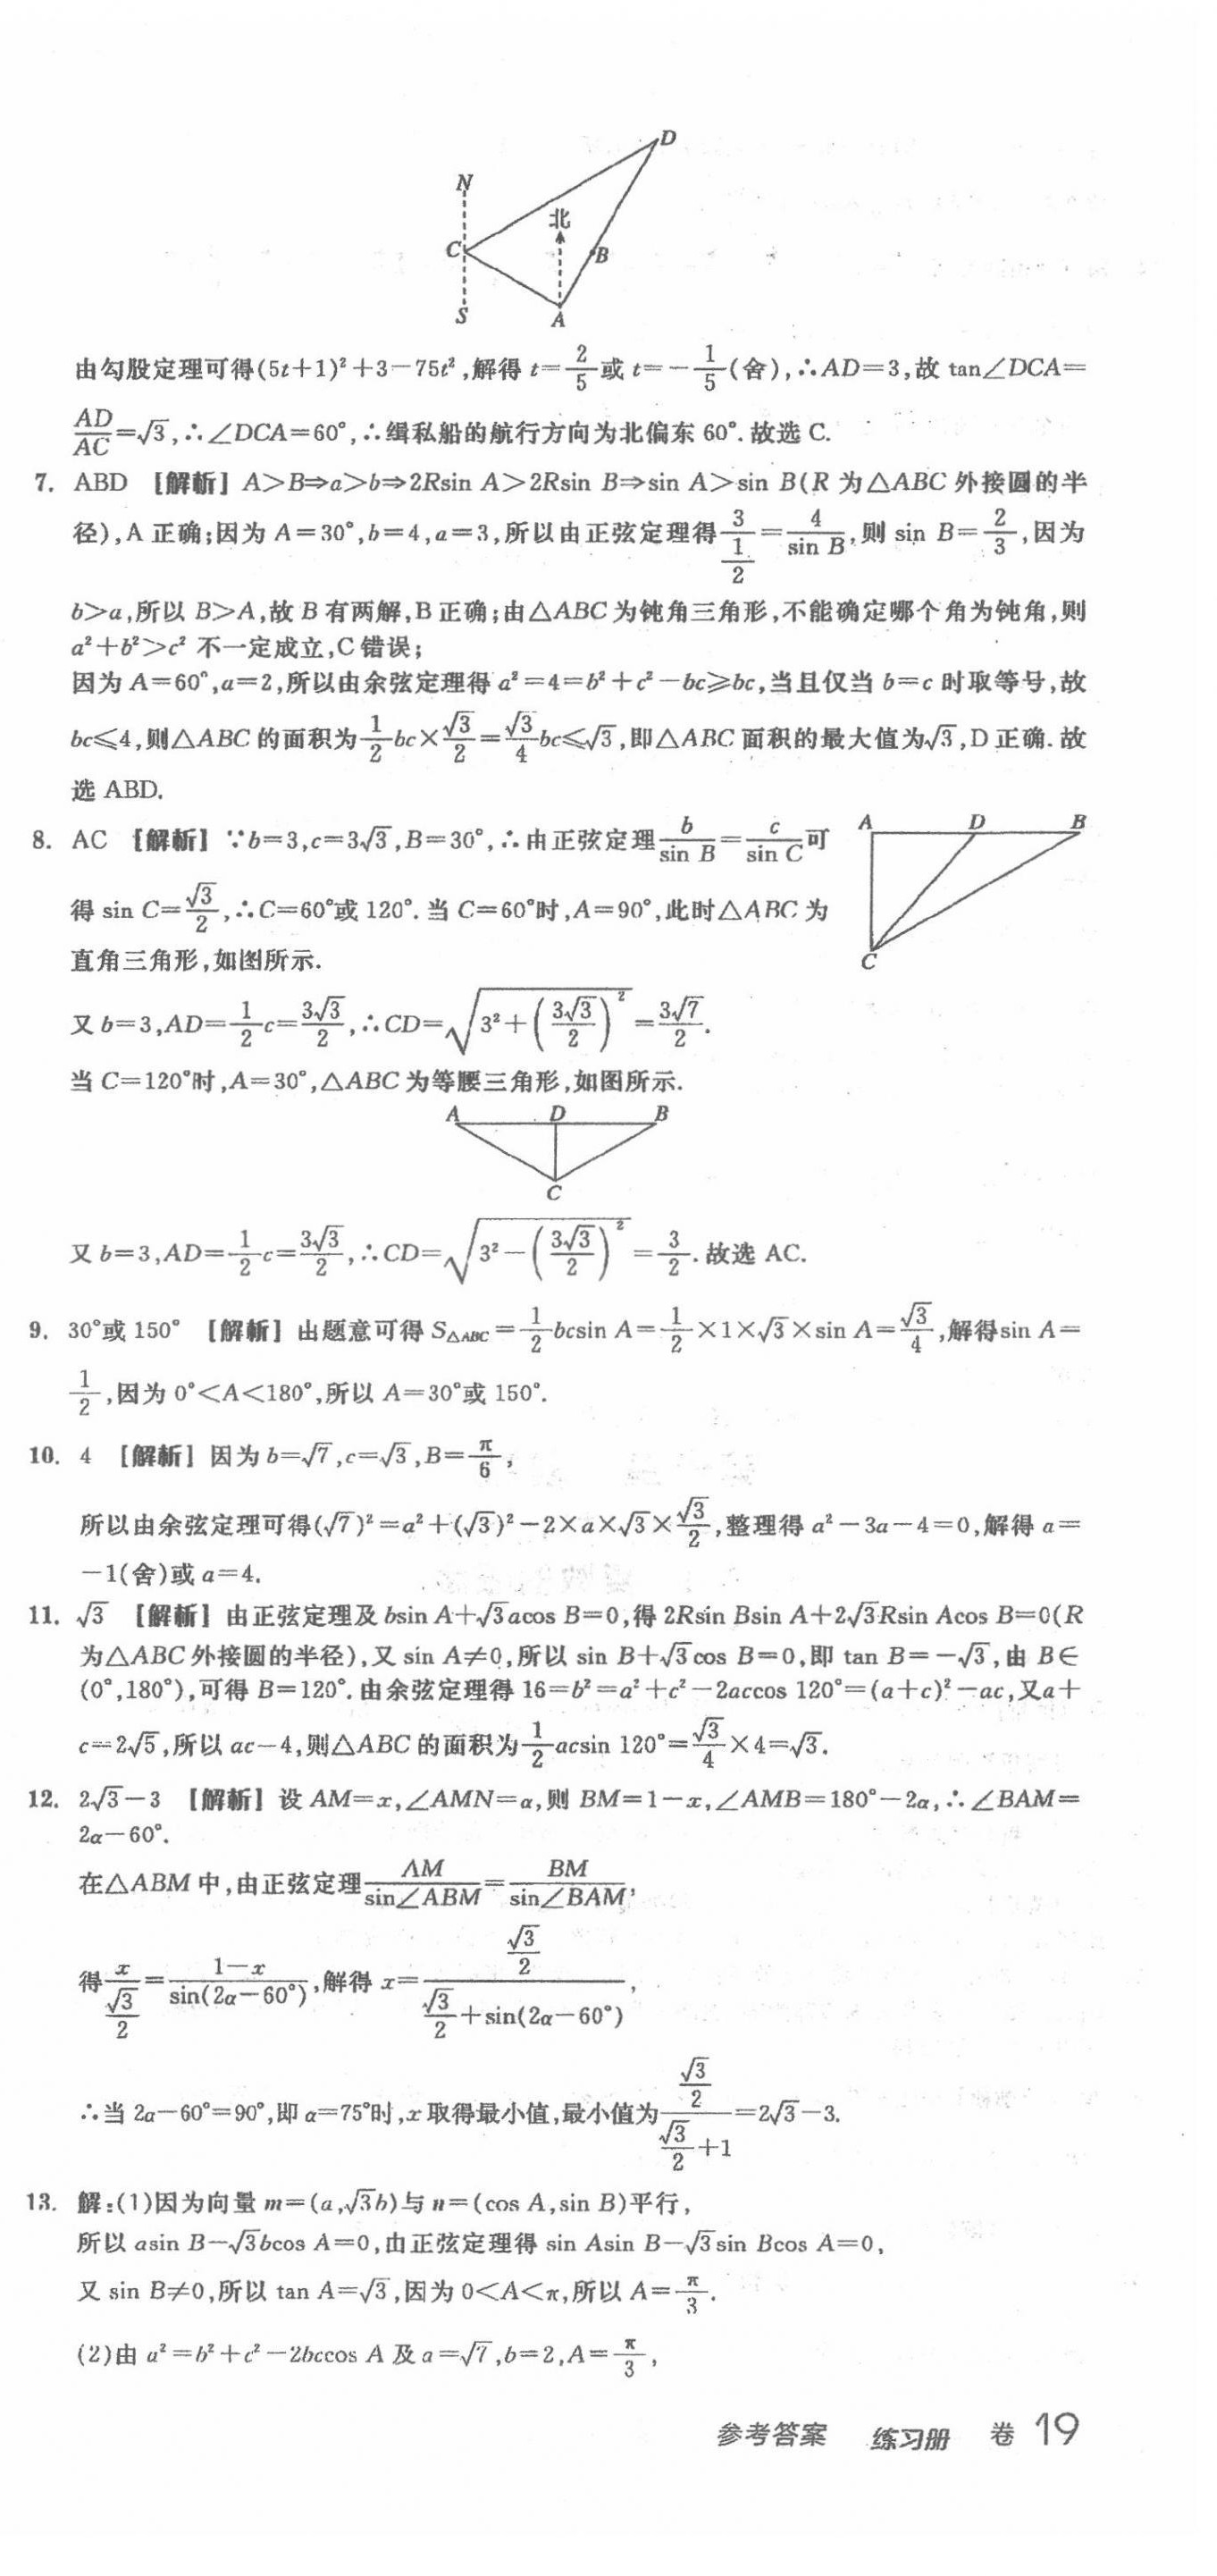 D
N
北
C
B
S
A
由勾股定理可得(5t+1)²+3=75t²,解得 t=2/5或 t=-1/5(舍),∴AD=3,故 tan∠DCA=
AD/AC=√3,∴∠DCA=60°,∴缉私船的航行方向为北偏东 60°.故选 C.
7. ABD [解析] A>B⇒a>b⇒2Rsin A>2Rsin B⇒sin A>sin B(R 为△ABC 外接圆的半
径),A 正确;因为 A=30°,b=4,a=3,所以由正弦定理得3/(1/2)=4/sin B,则 sin B=2/3,因为
b>a,所以 B>A,故 B 有两解,B 正确;由△ABC 为钝角三角形,不能确定哪个角为钝角,则
a²+b²>c² 不一定成立,C 错误;
因为 A=60°,a=2,所以由余弦定理得 a²=4=b²+c²-bc⩾bc,当且仅当 b=c 时取等号,故
bc⩽4,则△ABC 的面积为1/2bc×√3/2=√3/4bc⩽√3,即△ABC 面积的最大值为√3,D 正确.故
选 ABD.
8. AC [解析] ∵b=3,c=3√3,B=30°,∴由正弦定理b/sin B=c/sin C可
得 sin C=√3/2,∴C=60°或 120°.当 C=60°时,A=90°,此时△ABC 为
直角三角形,如图所示.
A D B
C
又 b=3,AD=1/2c=3√3/2,∴CD=√(3²+(3√3/2)²)=3√7/2.
当 C=120°时,A=30°,△ABC 为等腰三角形,如图所示.
A D B
C
又 b=3,AD=1/2c=3√3/2,∴CD=√(3²-(3√3/2)²)=3/2.故选 AC.
9. 30°或 150° [解析] 由题意可得 S△ABC=1/2bcsin A=1/2×1×√3×sin A=√3/4,解得sin A=
1/2,因为 0°<A<180°,所以 A=30°或 150°.
10. 4 [解析] 因为 b=√7,c=√3,B=π/6,
所以由余弦定理可得(√7)²=a²+(√3)²-2×a×√3×√3/2,整理得 a²-3a-4=0,解得 a=
-1(舍)或 a=4.
11. √3 [解析] 由正弦定理及 bsin A+√3acos B=0,得 2Rsin Bsin A+2√3Rsin Acos B=0(R
为△ABC 外接圆的半径),又 sin A≠0,所以 sin B+√3cos B=0,即 tan B=-√3,由 B∈
(0°,180°),可得 B=120°.由余弦定理得 16=b²=a²+c²-2accos 120°=(a+c)²-ac,又a+
c=2√5,所以 ac=4,则△ABC 的面积为1/2acsin 120°=√3/4×4=√3.
12. 2√3-3 [解析] 设 AM=x,∠AMN=α,则 BM=1-x,∠AMB=180°-2α,∴∠BAM=
2α-60°.
在△ABM 中,由正弦定理AM/sin∠ABM=BM/sin∠BAM,
得x/(√3/2)=(1-x)/sin(2α-60°),解得 x=(√3/2)/(√3/2+sin(2α-60°)),
∴当 2α-60°=90°,即 α=75°时,x 取得最小值,最小值为(√3/2)/(√3/2+1)=2√3-3.
13. 解:(1)因为向量 m=(a,√3b)与 n=(cos A,sin B)平行,
所以 asin B-√3bcos A=0,由正弦定理得 sin Asin B-√3sin Bcos A=0,
又 sin B≠0,所以 tan A=√3,因为 0<A<π,所以 A=π/3.
(2)由 a²=b²+c²-2bccos A 及 a=√7,b=2,A=π/3,
参考答案 练习册 卷 19